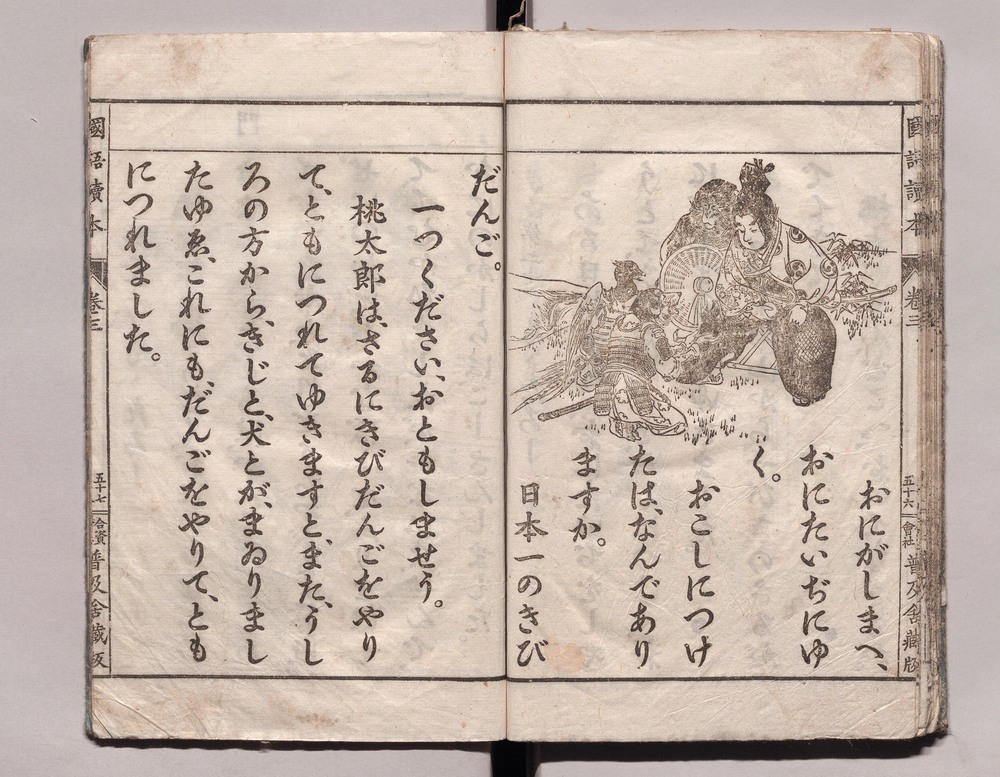 國語讀本
卷三
五十六
會社
普及舍藏版
おにがしまへ、
おにたいぢにゆ
く。
おこしにつけ
たは、なんであり
ますか。
日本一のきび
だんご。
一つください、おともしませう。
桃太郎は、さるにきびだんごをやり
て、ともにつれてゆきますと、また、うし
ろの方から、きじと、犬とが、まゐりまし
たゆゑ、これにも、だんごをやりて、とも
につれました。
國語讀本
卷三
五十七
合資
普及舍藏版